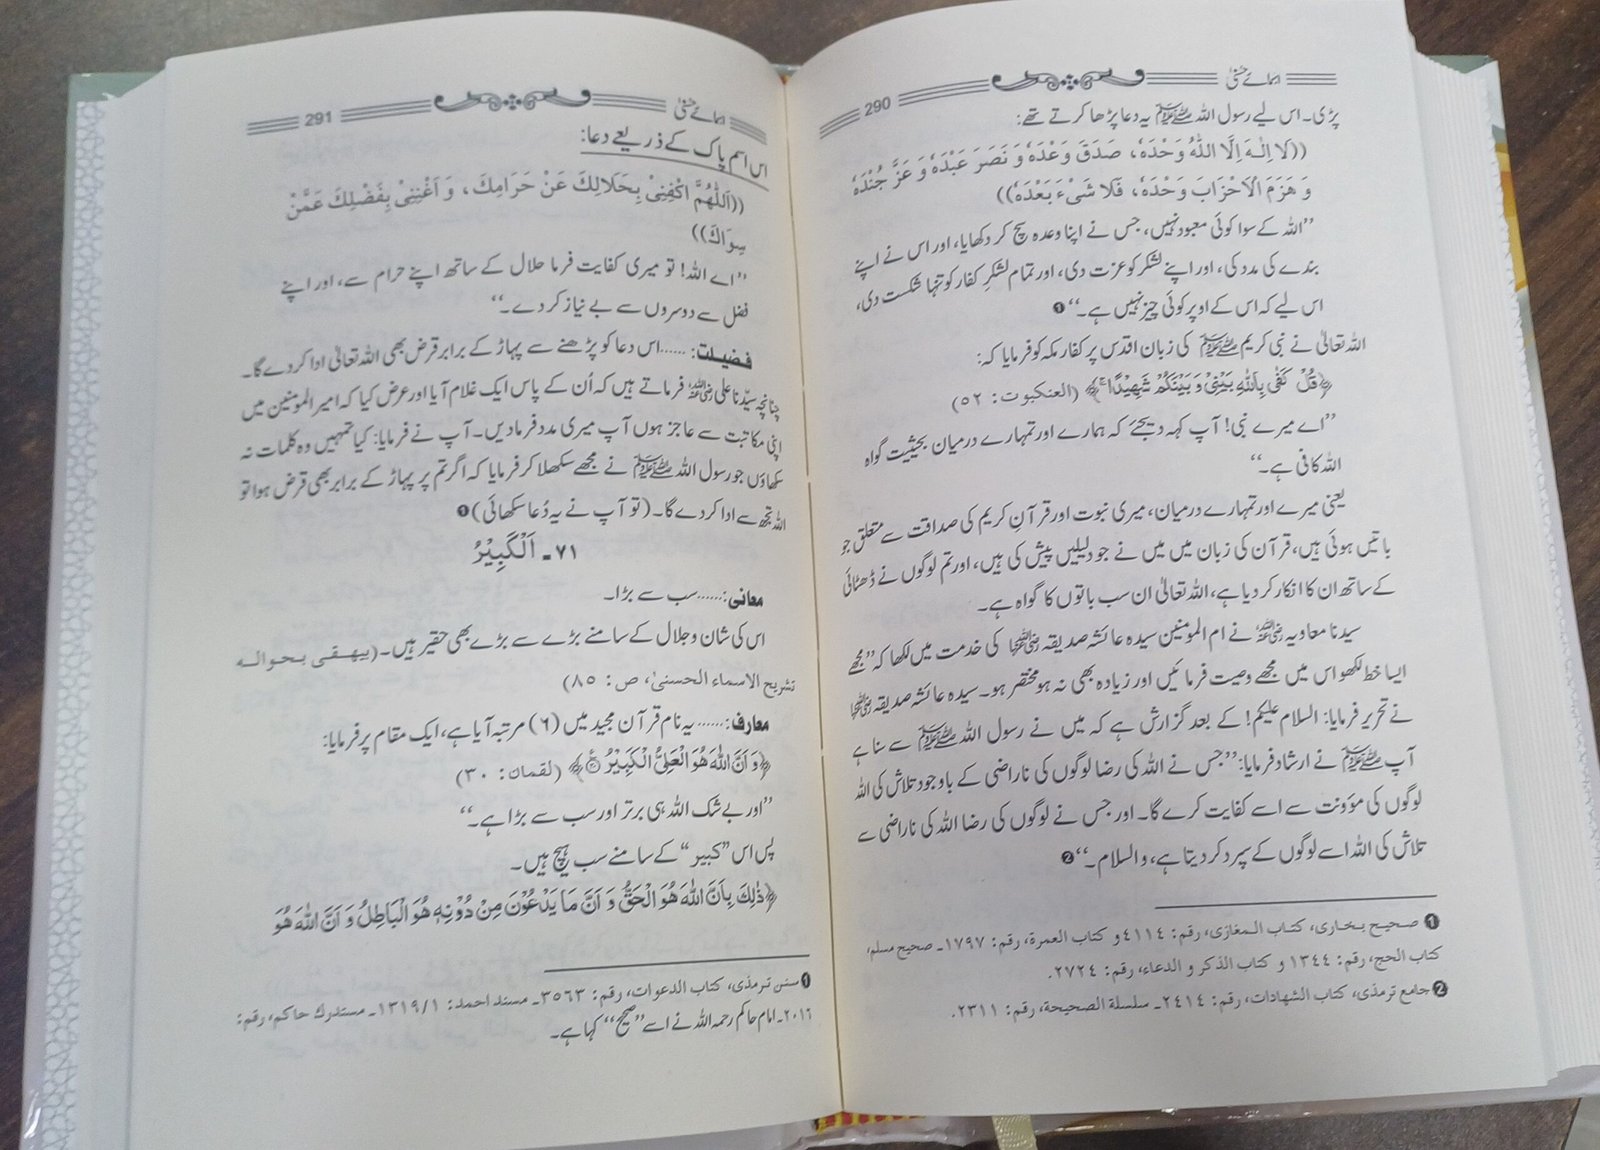 اسمائے حسنیٰ 290
پڑی۔ اس لیے رسول اللہ ﷺ یہ دعا پڑھا کرتے تھے:
((لَا اِلٰـهَ اِلَّا اللّٰهُ وَحْدَهٗ، صَدَقَ وَعْدَهٗ وَ نَصَرَ عَبْدَهٗ وَ عَزَّ جُنْدَهٗ
وَ هَزَمَ الْاَحْزَابَ وَحْدَهٗ، فَلَا شَیْءَ بَعْدَهٗ))
’’اللہ کے سوا کوئی معبود نہیں، جس نے اپنا وعدہ سچ کر دکھایا، اور اس نے اپنے
بندے کی مدد کی، اور اپنے لشکر کو عزت دی، اور تمام لشکرِ کفار کو تنہا شکست دی،
اس لیے کہ اس کے اوپر کوئی چیز نہیں ہے۔‘‘ ❶
اللہ تعالیٰ نے نبی کریم ﷺ کی زبان اقدس پر کفار مکہ کو فرمایا کہ:
﴿قُلْ كَفٰی بِاللّٰهِ بَیْنِیْ وَ بَیْنَكُمْ شَهِیْدًا ۚ﴾ (العنکبوت: ٥٢)
’’اے میرے نبی! آپ کہہ دیجئے کہ ہمارے اور تمہارے درمیان بحیثیت گواہ
اللہ کافی ہے۔‘‘
یعنی میرے اور تمہارے درمیان، میری نبوت اور قرآنِ کریم کی صداقت سے متعلق جو
باتیں ہوئی ہیں، قرآن کی زبان میں میں نے جو دلیلیں پیش کی ہیں، اور تم لوگوں نے ڈھٹائی
کے ساتھ ان کا انکار کر دیا ہے، اللہ تعالیٰ ان سب باتوں کا گواہ ہے۔
سیدنا معاویہ رضی اللہ عنہ نے ام المومنین سیدہ عائشہ صدیقہ رضی اللہ عنہا کی خدمت میں لکھا کہ ’’مجھے
ایسا خط لکھو اس میں مجھے وصیت فرمائیں اور زیادہ بھی نہ ہو مختصر ہو۔ سیدہ عائشہ صدیقہ رضی اللہ عنہا
نے تحریر فرمایا: السلام علیکم! کے بعد گزارش ہے کہ میں نے رسول اللہ ﷺ سے سنا ہے
آپ ﷺ نے ارشاد فرمایا: ’’جس نے اللہ کی رضا لوگوں کی ناراضی کے باوجود تلاش کی اللہ
لوگوں کی موؤنت سے اسے کفایت کرے گا۔ اور جس نے لوگوں کی رضا اللہ کی ناراضی سے
تلاش کی اللہ اسے لوگوں کے سپرد کر دیتا ہے، والسلام۔‘‘ ❷
❶ صحیح بخاری، کتاب المغازی، رقم: ٤١١٤ و کتاب العمرة، رقم: ١٧٩٧۔ صحیح مسلم،
کتاب الحج، رقم: ١٣٤٤ و کتاب الذکر و الدعاء، رقم: ٢٧٢٤.
❷ جامع ترمذی، کتاب الشهادات، رقم: ٢٤١٤۔ سلسلة الصحیحة، رقم: ٢٣١١.
اسمائے حسنیٰ 291
اس اسم پاک کے ذریعے دعا:
((اَللّٰهُمَّ اكْفِنِیْ بِحَلَالِكَ عَنْ حَرَامِكَ، وَ اَغْنِنِیْ بِفَضْلِكَ عَمَّنْ
سِوَاكَ))
’’اے اللہ! تو میری کفایت فرما حلال کے ساتھ اپنے حرام سے، اور اپنے
فضل سے دوسروں سے بے نیاز کر دے۔‘‘
فضیلت: ......اس دعا کو پڑھنے سے پہاڑ کے برابر قرض بھی اللہ تعالیٰ ادا کر دے گا۔
چنانچہ سیّدنا علی رضی اللہ عنہ فرماتے ہیں کہ اُن کے پاس ایک غلام آیا اور عرض کیا کہ امیر المومنین میں
اپنی مکاتبت سے عاجز ہوں آپ میری مدد فرما دیں۔ آپ نے فرمایا: کیا تمہیں وہ کلمات نہ
سکھاؤں جو رسول اللہ ﷺ نے مجھے سکھلا کر فرمایا کہ اگر تم پر پہاڑ کے برابر بھی قرض ہوا تو
اللہ تجھ سے ادا کر دے گا۔ (تو آپ نے یہ دُعا سکھائی) ❶
٧١۔ اَلْكَبِیْرُ
معانی: ......سب سے بڑا۔
اس کی شان و جلال کے سامنے بڑے سے بڑے بھی حقیر ہیں۔ (بیہقی بحوالہ
تشریح الاسماء الحسنیٰ، ص: ٨٥)
معارف: ......یہ نام قرآن مجید میں (٦) مرتبہ آیا ہے، ایک مقام پر فرمایا:
﴿وَ اَنَّ اللّٰهَ هُوَ الْعَلِیُّ الْكَبِیْرُ﴾ (لقمان: ٣٠)
’’اور بے شک اللہ ہی برتر اور سب سے بڑا ہے۔‘‘
پس اس ’’کبیر‘‘ کے سامنے سب ہیچ ہیں۔
﴿ذٰلِكَ بِاَنَّ اللّٰهَ هُوَ الْحَقُّ وَ اَنَّ مَا یَدْعُوْنَ مِنْ دُوْنِهٖ هُوَ الْبَاطِلُ وَ اَنَّ اللّٰهَ هُوَ
❶ سنن ترمذی، کتاب الدعوات، رقم: ٣٥٦٣۔ مسند احمد: ١/١٣١٩۔ مستدرك حاکم، رقم:
٢٠١٦۔ امام حاکم رحمہ اللہ نے اسے ’’صحیح‘‘ کہا ہے۔